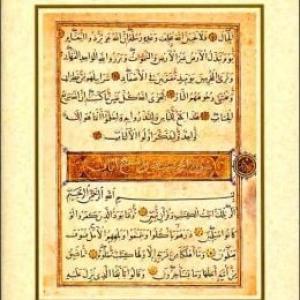 الجبال فلا تحسبن الله مخلف وعده رسله ان الله عزيز ذو انتقام
يوم تبدل الارض غير الارض والسموات وبرزوا لله الواحد القهار
وترى المجرمين يومئذ مقرنين في الاصفاد سرابيلهم من قطران
وتغشى وجوههم النار ليجزي الله كل نفس ما كسبت ان الله سريع
الحساب هذا بلاغ للناس ولينذروا به وليعلموا انما هو اله
واحد وليذكر اولوا الالباب
بسم الله الرحمن الرحيم
الر تلك ايات الكتب وقران مبين ربما يود الذين كفروا لو
كانوا مسلمين ذرهم ياكلوا ويتمتعوا ويلههم الامل فسوف
يعلمون وما اهلكنا من قرية الا ولها كتاب معلوم ما تسبق
من امة اجلها وما يستاخرون وقالوا يا ايها الذي نزل عليه